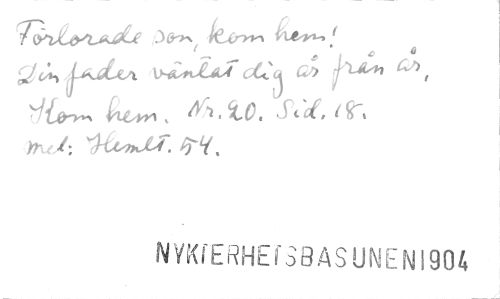 Förlorade son, kom hem!
Din fader väntat dig år från år,
Kom hem. Nr. 20. Sid. 18.
mel: Hemlt. 54.
NYKTERHETSBASUNEN 1904